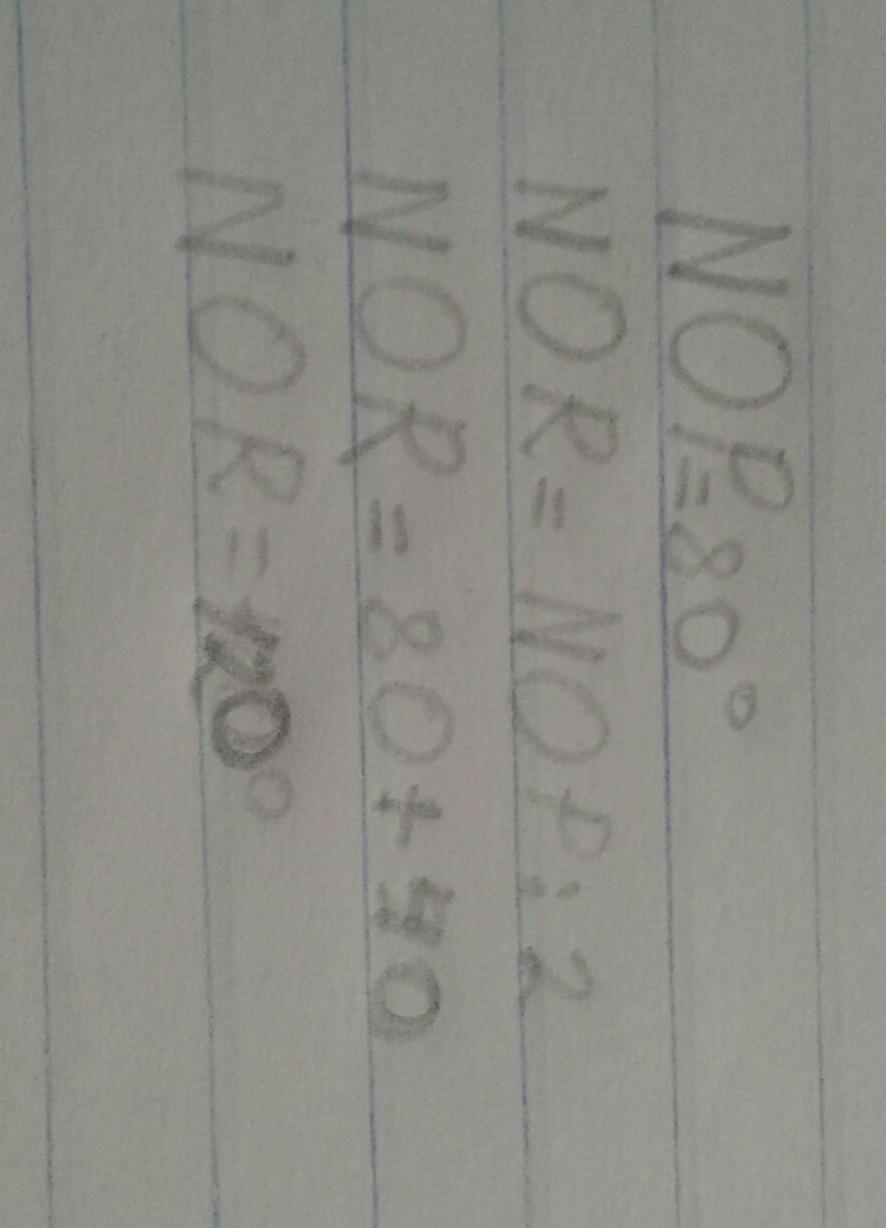 NOP=80°
NOR=NOP:2
NOR=80+40
NOR=120°